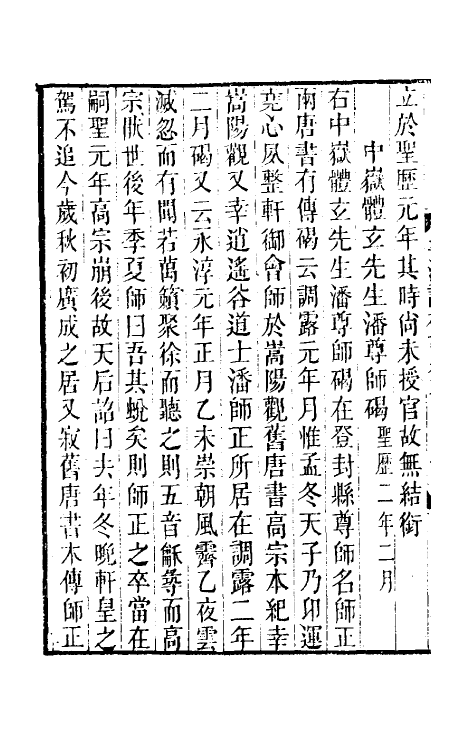 立於聖歷元年其時尚未授官故無結銜
中嶽體玄先生潘尊師碣聖歷二年二月
右中嶽體玄先生潘尊師碣在登封縣尊師名師正
兩唐書有傳碣云調露元年月惟孟冬天子乃卬運
堯心夙整軒御會師於嵩陽觀舊唐書高宗本紀幸
嵩陽觀又幸逍遙谷道士潘師正所居在調露二年
二月碣又云永淳元年正月乙未崇朝風霽乙夜雲
滅忽而有聞若萬籟聚徐而聽之則五音龢㝵而高
宗猒世後年季夏師曰吾其蛻矣則師正之卒當在
嗣聖元年高宗崩後故天后詔曰去年冬晚軒皇之
駕不追今歲秋初廣成之居又寂舊唐書本傳師正